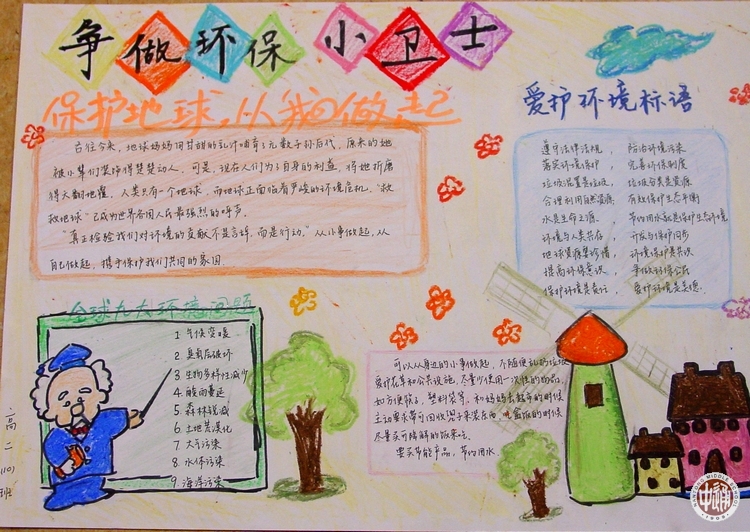 争做环保小卫士
保护地球,从我做起
古往今来,地球妈妈用甘甜的乳汁哺育了无数子孙后代,原来的她
被小辈们装饰得楚楚动人。可是,现在人们为了自身的利益,将她折磨
得天翻地覆。人类只有一个地球,而地球正面临着严峻的环境危机。"救
救地球"已成为世界各国人民最强烈的呼声。
"真正检验我们对环境的贡献不是言辞,而是行动。"从小事做起,从
自己做起,携手保护我们共同的家园。
爱护环境标语
遵守法律法规, 防治环境污染
落实环境保护, 完善环保制度
垃圾混置是垃圾, 垃圾分类是资源
合理利用自然资源, 有效保护生态平衡
水是生命之源, 节约用水就是保护生态环境
环境与人类共存, 开发与保护同步
地球资源要珍惜, 环境保护要共识
提高环保意识, 争做环保公民
保护环境是责任, 爱护环境是美德
全球九大环境问题
1 气候变暖
2 臭氧层破坏
3 生物多样性减少
4 酸雨蔓延
5 森林锐减
6 土地荒漠化
7 大气污染
8 水体污染
9 海洋污染
可以从身边的小事做起,不随便乱扔垃圾
爱护花草和公共设施,尽量少使用一次性的物品,
如方便筷子,塑料袋等,和妈妈去超市的时候
主动要求带可回收袋子来装东西,吃盒饭的时候
尽量买可降解的饭盒吃
要买节能产品,节约用水
高二(10)班
NANTONG MIDDLE SCHOOL
1909